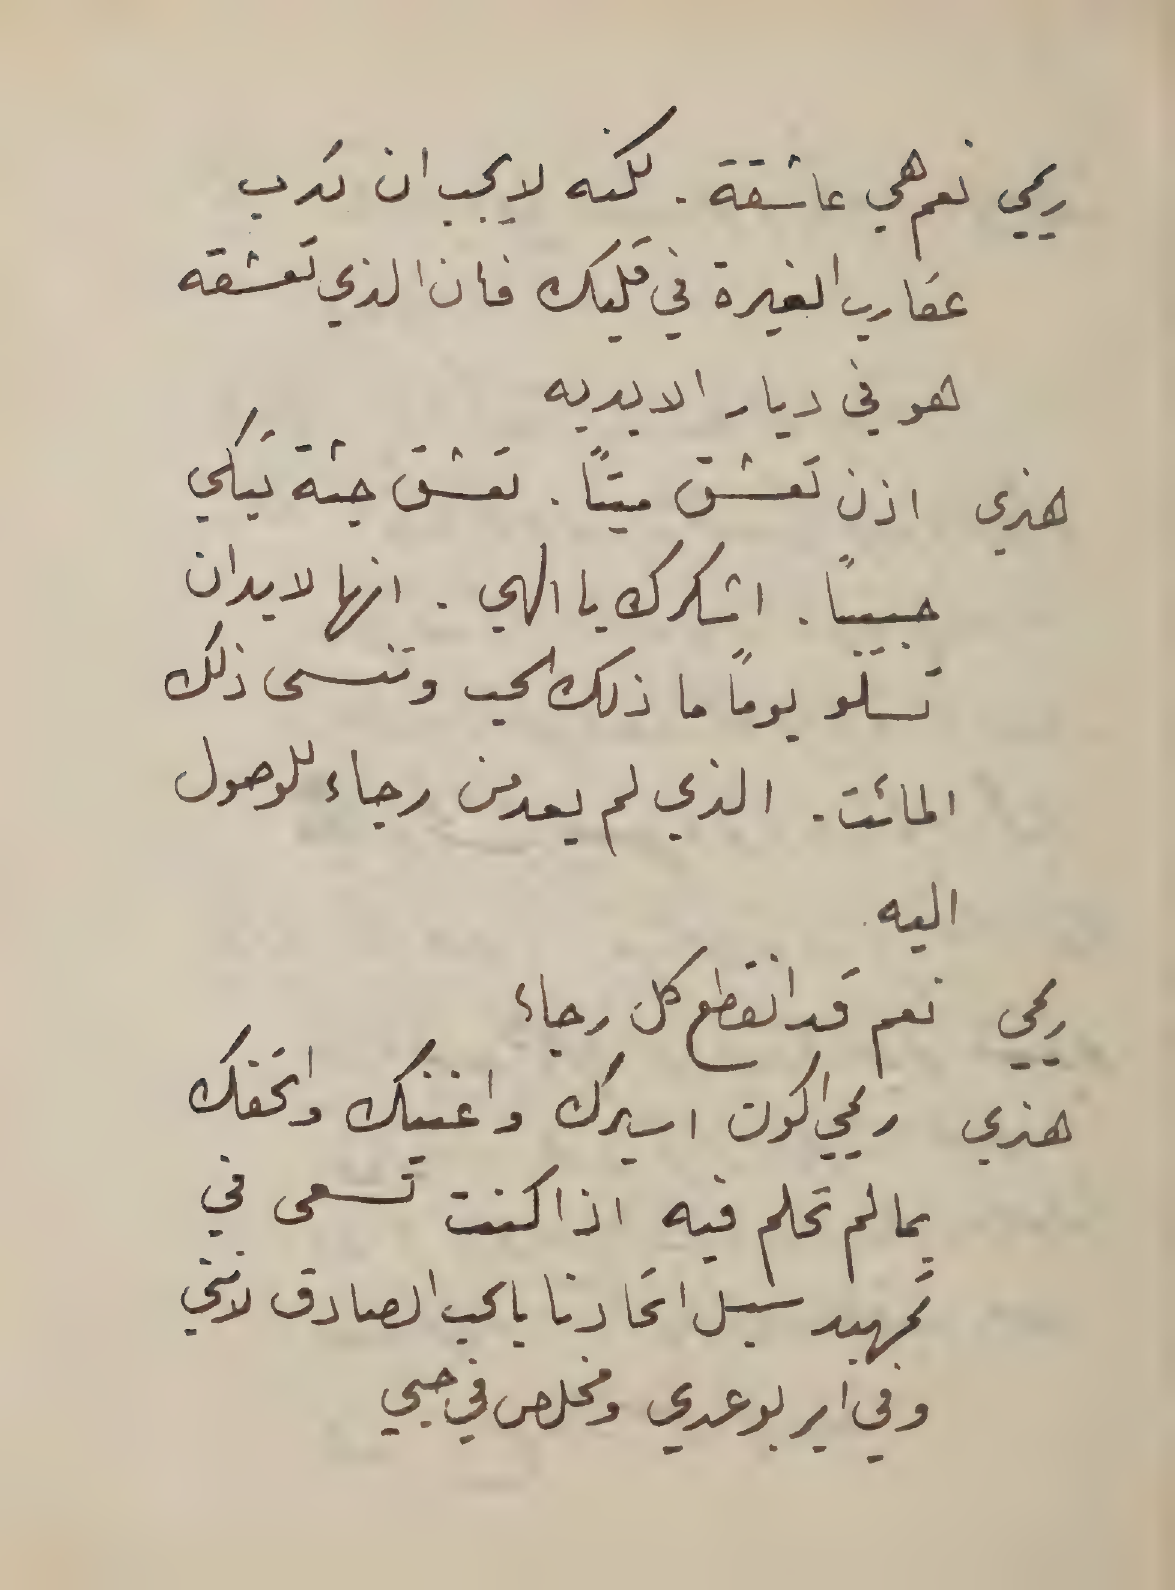 ريمي نعم هي عاشقة . لكنه لا يجب ان تدب
عقارب الغيرة في قلبك فان الذي تعشقه
هو في ديار الابديه
هنري اذن تعشق ميتًا . تعشق جثة تبكي
حبيبًا . اشكرك يا الهي . انها لا بد ان
تسلو يومًا ما ذلك الحب وتنسى ذلك
المائت . الذي لم يعد من رجاء للوصول
اليه .
ريمي نعم قد انقطع كل رجاء
هنري ريمي اكون اسيرك واغنيك واتحفك
بما لم تحلم فيه اذا كنت تسعى في
تمهيد سبيل اتحادنا بالحب الصادق لانني
وفي ابر بوعدي ومخلص في حبي